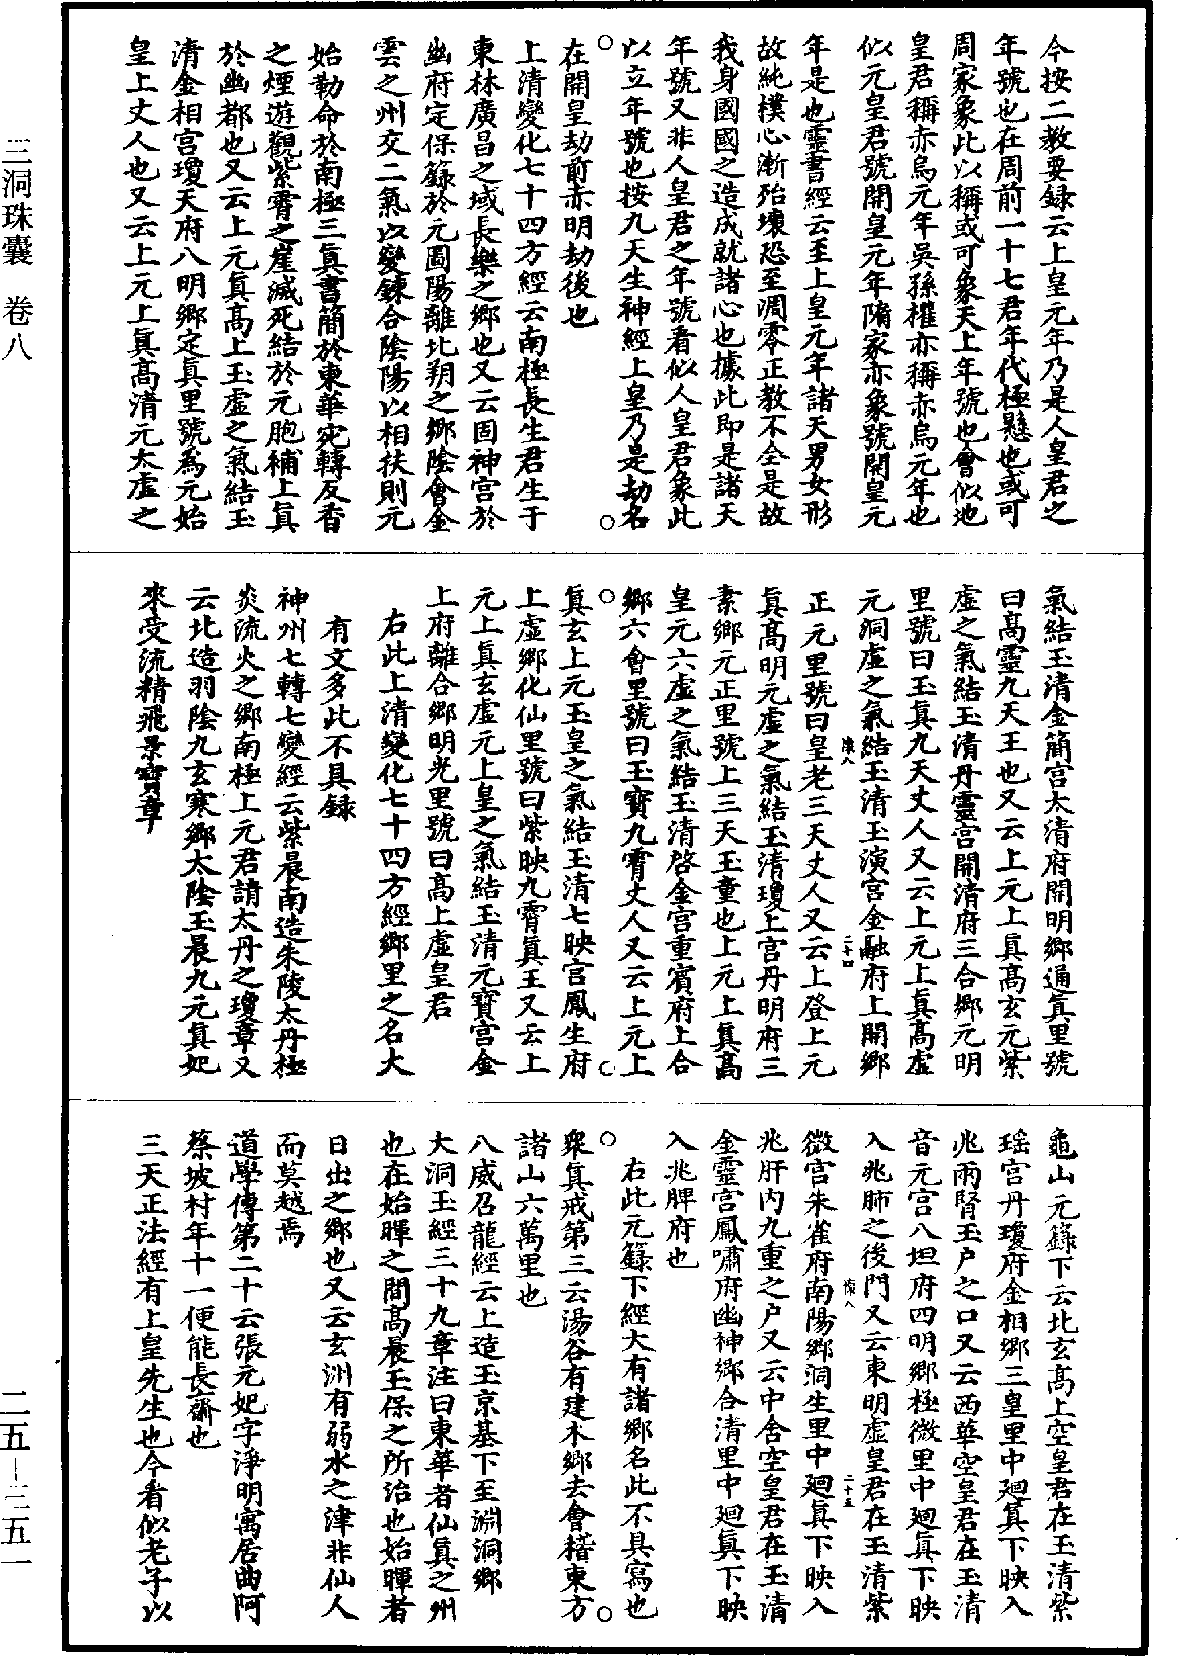 今按二教要録云上皇元年乃是人皇君之
年號也在周前一十七君年代極懸也或可
周家象此以稱或可象天上年號也會似地
皇君稱赤烏元年吳孫權亦稱赤烏元年也
似元皇君號開皇元年隋家亦象號開皇元
年是也靈書經云至上皇元年諸天男女形
故純樸心漸殆壞恐至凋零正教不全是故
我身國國之造成就諸心也據此即是諸天
年號又非人皇君之年號看似人皇君象此
以立年號也按九天生神經上皇乃是劫名
在開皇劫前赤明劫後也
上清變化七十四方經云南極長生君生于
東林廣昌之域長樂之鄉也又云固神宮於
幽府定保錄於元圖陽離北朔之鄉陰會金
雲之州交二氣以變鍊合陰陽以相扶則元
始勒命於南極三真書簡於東華宛轉反香
之煙遊觀紫霄之崖滅死結於元胞補上真
於幽都也又云上元真高上玉虛之氣結玉
清金相宮瓊天府八明鄉定真里號為元始
皇上丈人也又云上元上真高清元太虛之
氣結玉清金簡宮太清府開明鄉通真里號
曰高靈九天王也又云上元上真高玄元紫
虛之氣結玉清丹靈宮開清府三合鄉元明
里號曰玉真九天丈人又云上元上真高虛
元洞虛之氣結玉清玉演宮金融府上開鄉
正元里號曰皇老三天丈人又云上登上元
真高明元虛之氣結玉清瓊上宮丹明府三
素鄉元正里號上三天玉童也上元上真高
皇元六虛之氣結玉清啓金宮重賓府上合
鄉六會里號曰玉寶九霄丈人又云上元上
真玄上元玉皇之氣結玉清七映宮鳳生府
上虛鄉化仙里號曰紫映九霄真王又云上
元上真玄虛元上皇之氣結玉清元寶宮金
上府離合鄉明光里號曰高上虛皇君
右此上清變化七十四方經鄉里之名大
有文多此不具録
神州七轉七變經云紫晨南造朱陵太丹極
炎流火之鄉南極上元君請太丹之瓊章又
云北造羽陰九玄寒鄉太陰玉晨九元真妃
來受流精飛景寶章
龜山元籙下云北玄高上空皇君在玉清紫
瑶宮丹瓊府金相鄉三皇里中廻真下映入
兆兩腎玉户之口又云西華空皇君在玉清
音元宮八坦府四明鄉極微里中廻真下映
入兆肺之後門又云東明虛皇君在玉清紫
微宮朱雀府南陽鄉洞生里中廻真下映入
兆肝内九重之户又云中舍空皇君在玉清
金靈宮鳳嘯府幽神鄉合清里中廻真下映
入兆脾府也
右此元籙下經大有諸鄉名此不具寫也
衆真戒第三云湯谷有建木鄉去會稽東方
諸山六萬里也
八威召龍經云上造玉京基下至淵洞鄉
大洞玉經三十九章注曰東華者仙真之州
也在始暉之間高晨玉保之所治也始暉者
日出之鄉也又云玄洲有弱水之津非仙人
而莫越焉
道學傳第二十云張元妃字淨明寓居曲阿
蔡坡村年十一便能長齋也
三天正法經有上皇先生也今看似老子以
三洞珠囊　卷八
二五—三五一